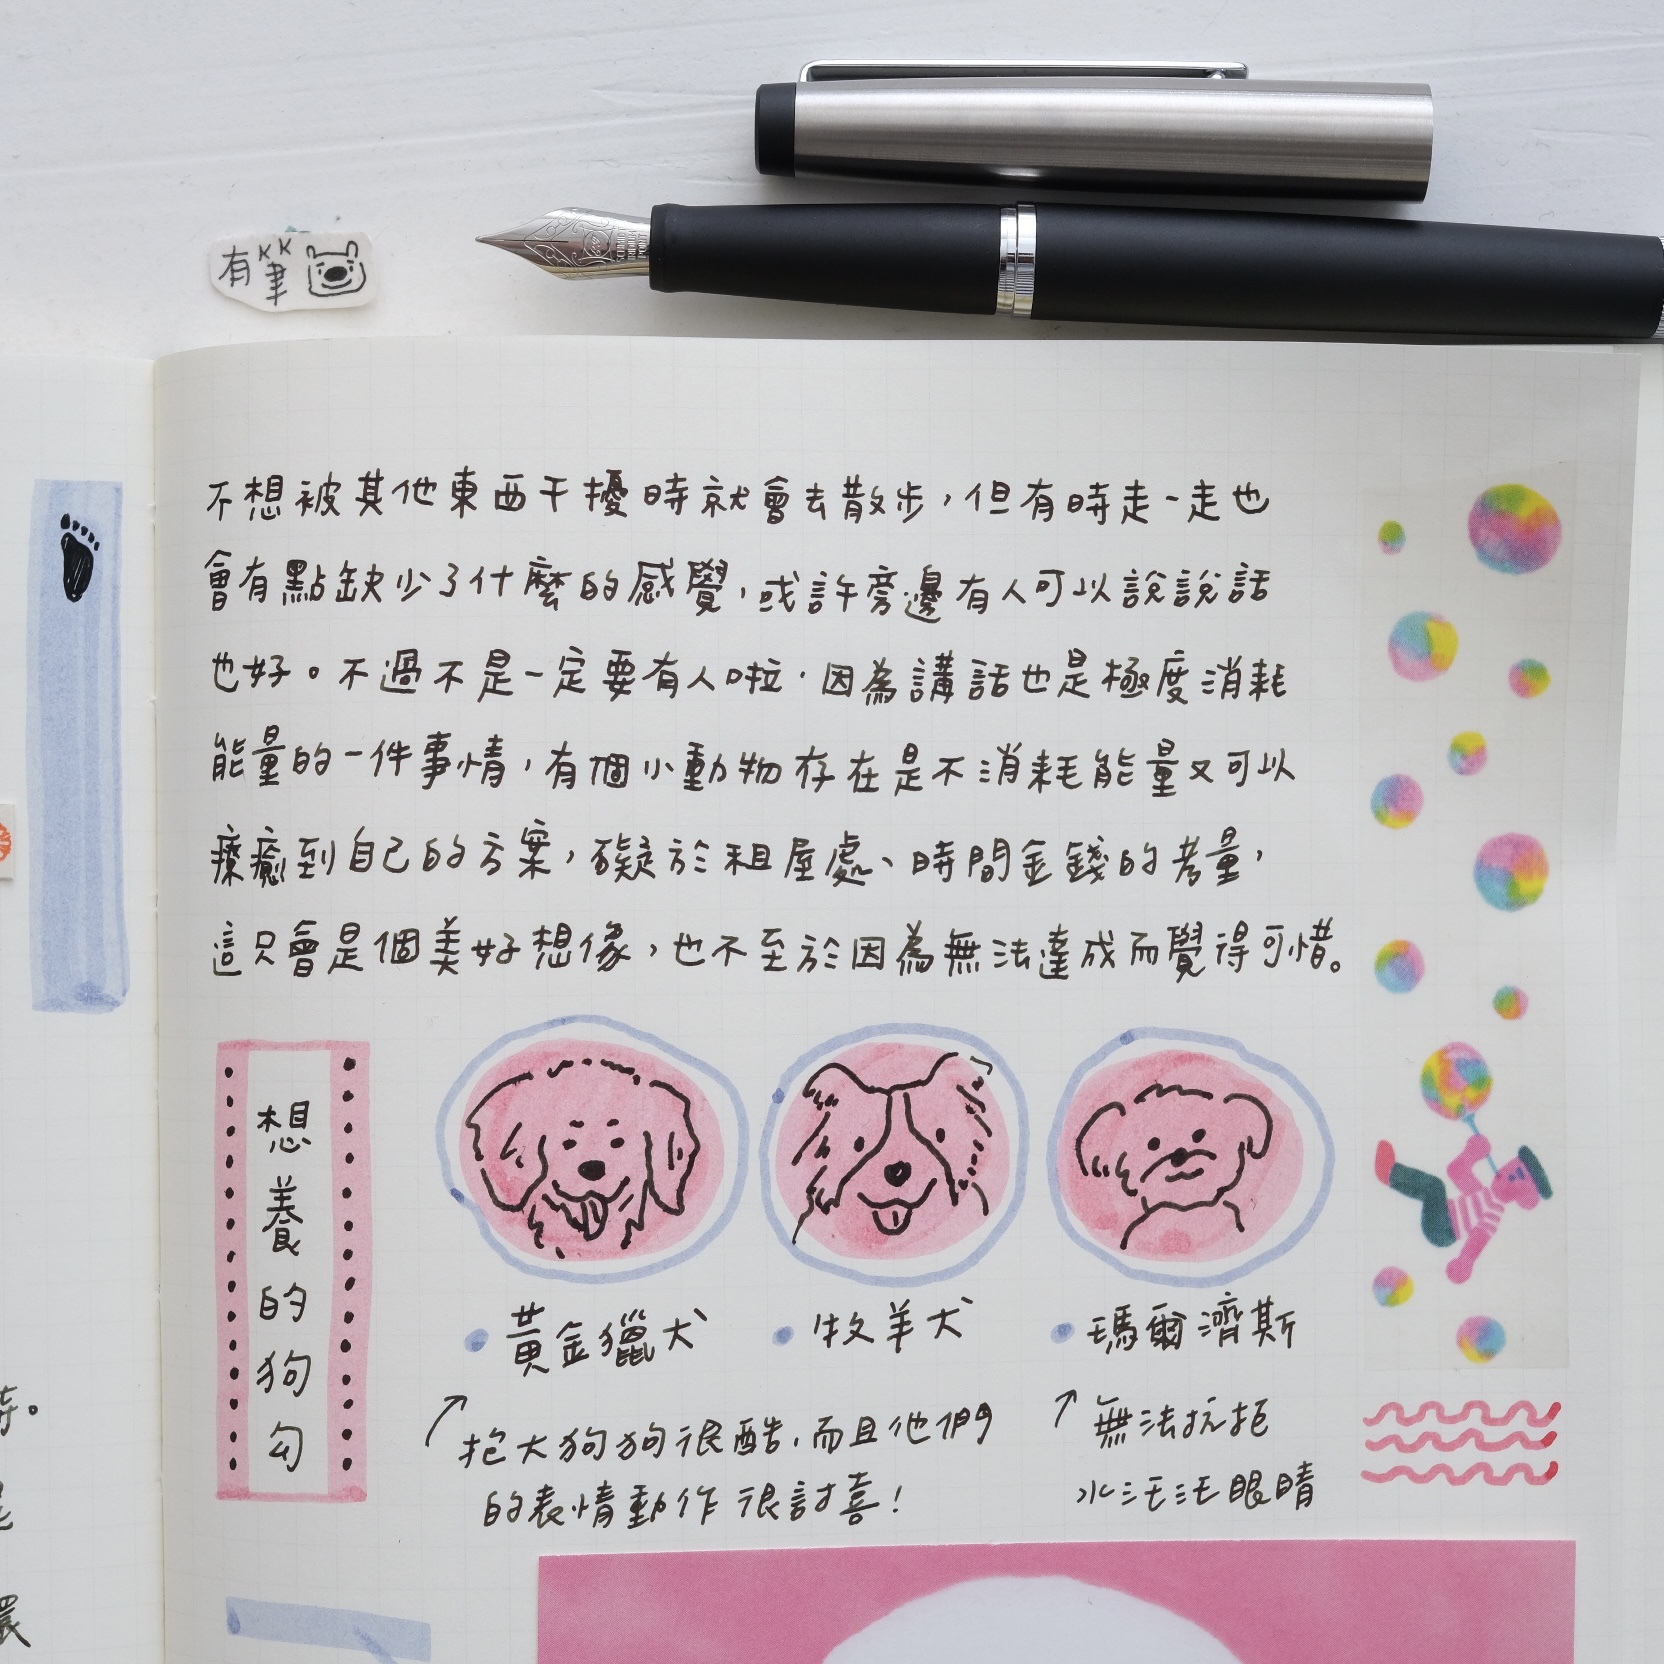 有筆
不想被其他東西干擾時就會去散步，但有時走一走也
會有點缺少了什麼的感覺，或許旁邊有人可以說說話
也好。不過不是一定要有人啦，因為講話也是極度消耗
能量的一件事情，有個小動物存在是不消耗能量又可以
療癒到自己的方案，礙於租屋處、時間金錢的考量，
這只會是個美好想像，也不至於因為無法達成而覺得可惜。
想養的狗勾
黃金獵犬
牧羊犬
瑪爾濟斯
抱大狗狗很酷，而且他們
的表情動作很討喜！
無法抗拒
水汪汪眼睛